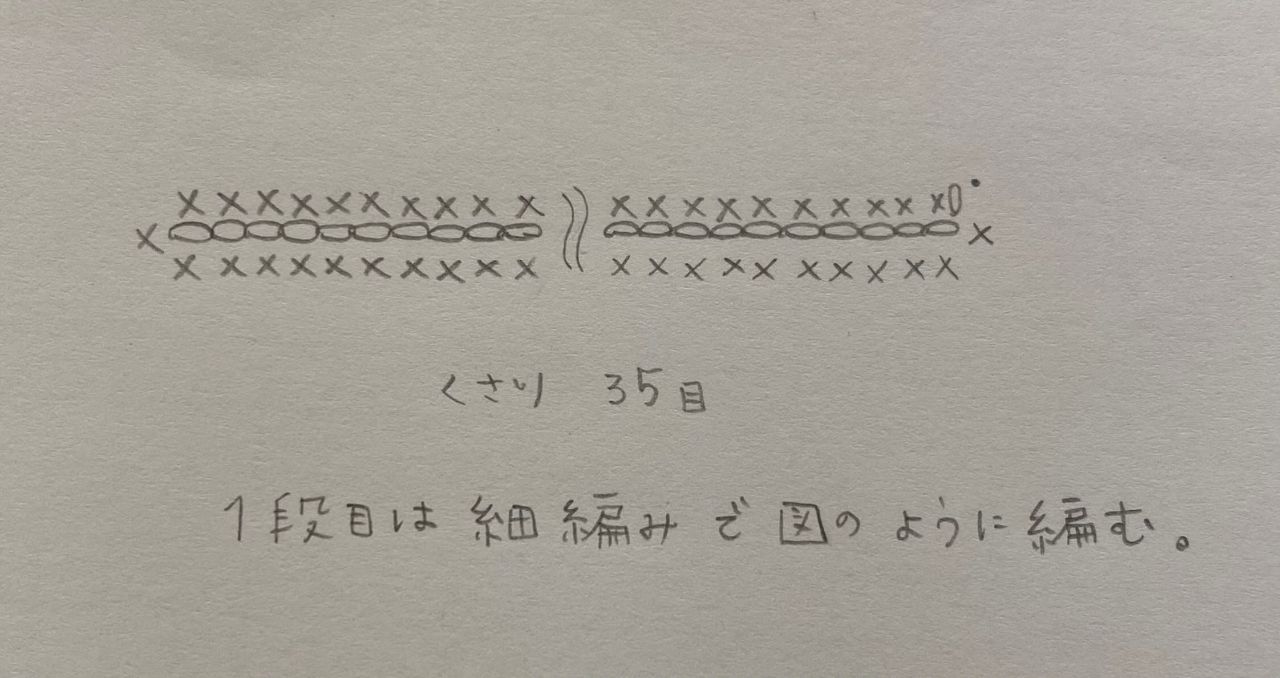 くさり 35目
1段目は細編みで図のように編む。